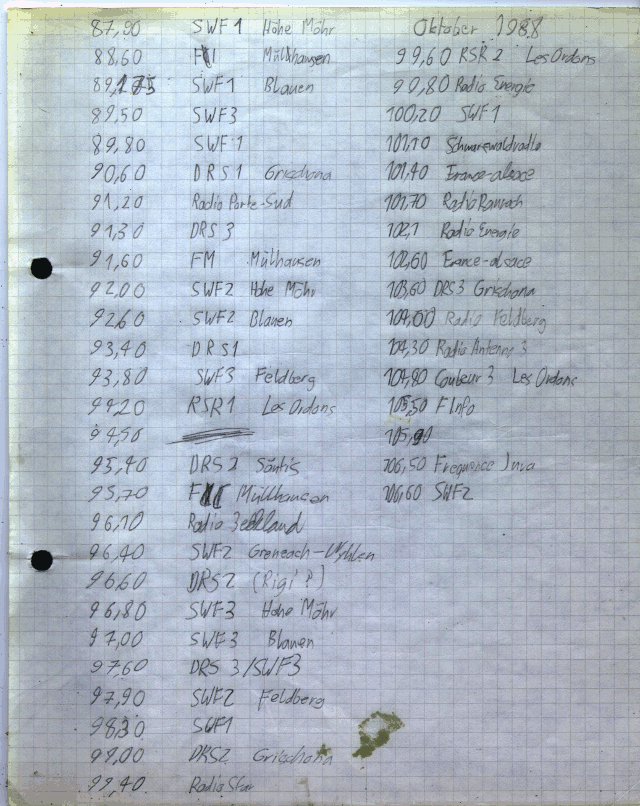 Oktober 1988
87,90 SWF1 Hohe Möhr
88,60 Mülhausen
89,175 SWF1 Blauen
89,50 SWF3
89,80 SWF1
90,60 DRS1 Grischona
91,20 Radio Porte-Sud
91,30 DRS3
91,60 FM Mülhausen
92,00 SWF2 Hohe Möhr
92,60 SWF2 Blauen
93,40 DRS1
93,80 SWF3 Feldberg
99,20 RSR1 Les Ordons
94,50
95,40 DRS2 Säntis
95,70 Mülhausen
96,10 Radio 3eckland
96,40 SWF2 Grenzach-Wyhlen
96,60 DRS2 (Rigi?)
96,80 SWF3 Hohe Möhr
97,00 SWF3 Blauen
97,60 DRS3/SWF3
97,90 SWF2 Feldberg
98,30 SWF1
99,00 DRS2 Grischona
99,40 Radio Star
99,60 RSR2 Les Ordons
90,80 Radio Energie
100,20 SWF1
101,10 Schwarzwaldradio
101,40 France-alsace
101,70 Radio
102,1 Radio Energie
102,60 France-alsace
103,60 DRS3 Grischona
104,00 Radio Feldberg
104,30 Radio Antenne 3
104,80 Couleur 3 Les Ordons
105,50 F Info
105,90
106,50 Frequence Jura
106,60 SWF2